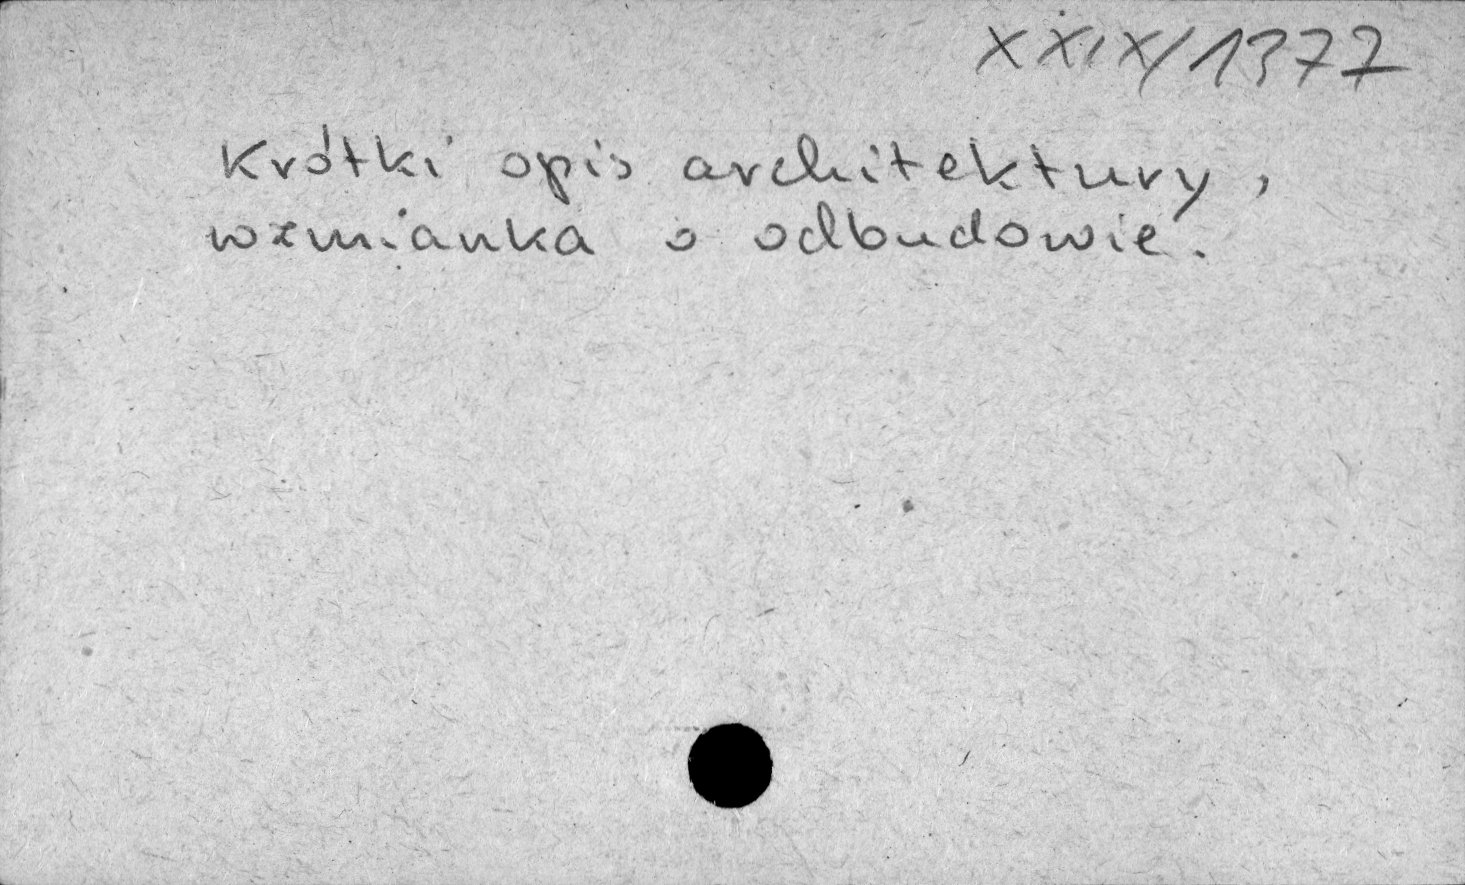 XXIX/1377
Krótki opis architektury,
wzmianka o odbudowie.